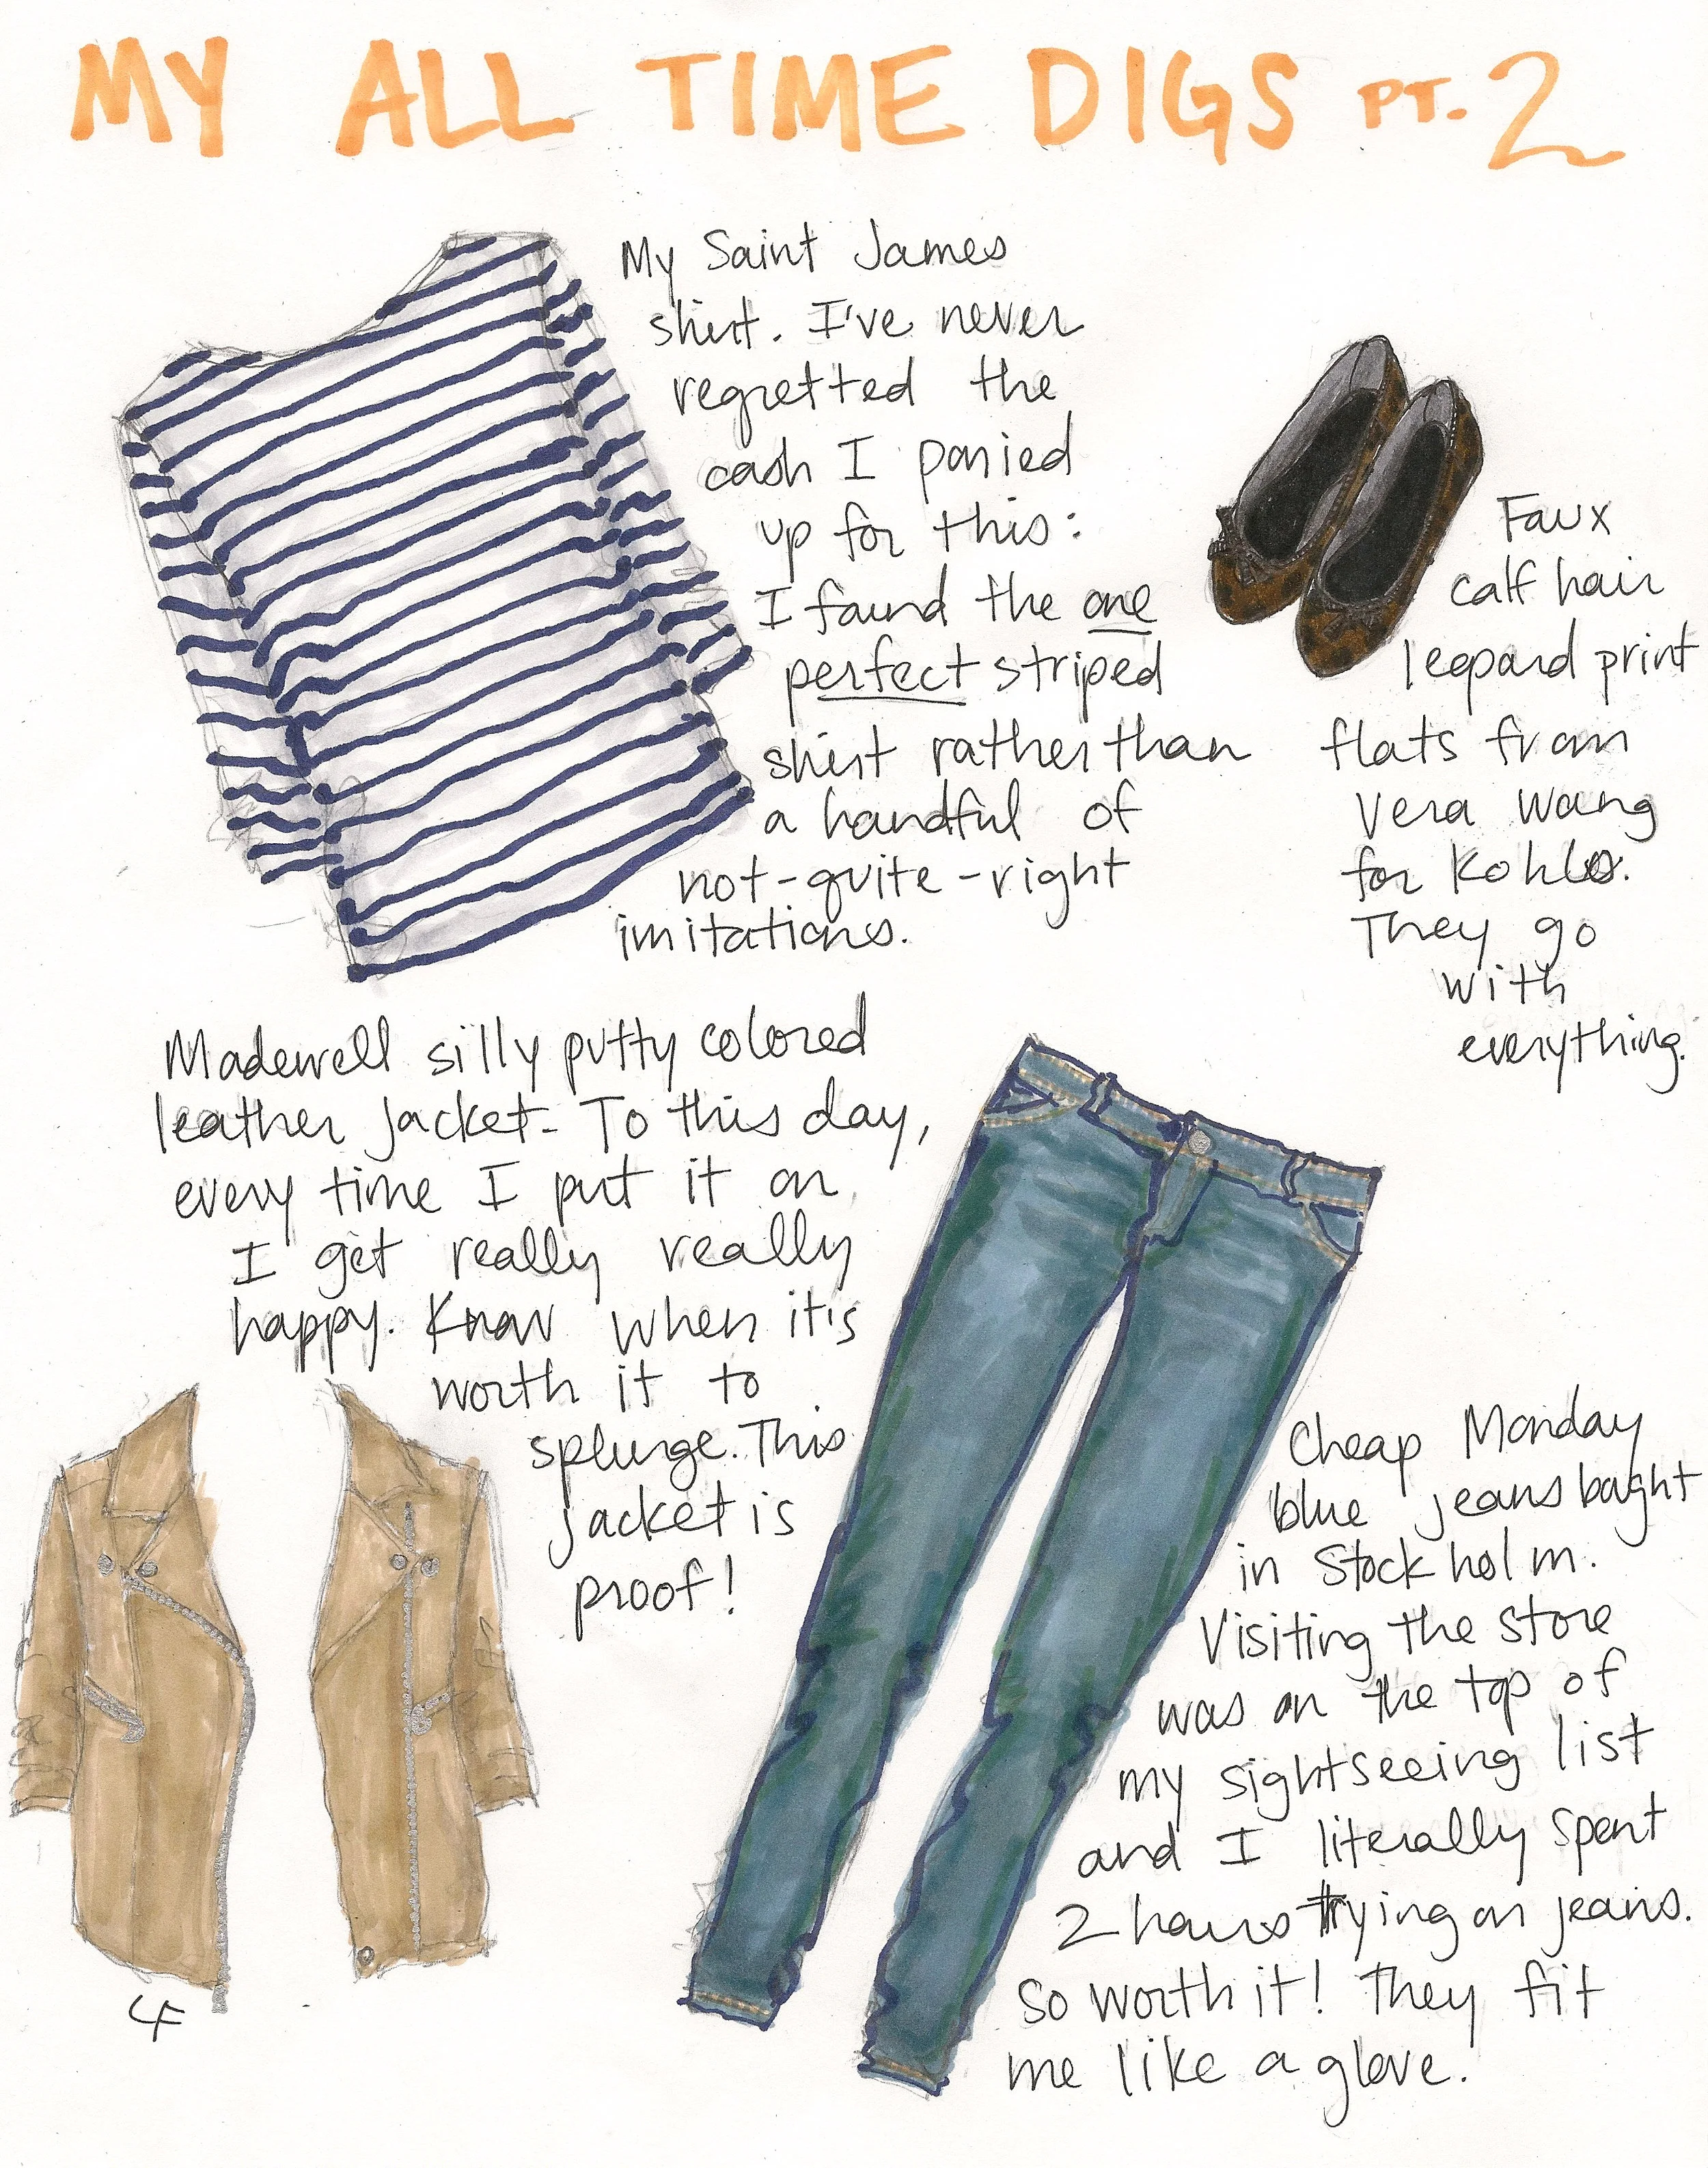 MY ALL TIME DIGS PT. 2
My Saint James
shirt. I've never
regretted the
cash I ponied
up for this:
I found the one
perfect striped
shirt rather than
a handful of
not-quite-right
imitations.
Faux
calf hair
leopard print
flats from
Vera Wang
for Kohls.
They go
with
everything.
Madewell silly putty colored
leather jacket. To this day,
every time I put it on
I get really really
happy. Know when it is
worth it to
splurge. This
jacket is
proof!
Cheap Monday
blue jeans bought
in Stockholm.
Visiting the store
was on the top of
my sightseeing list
and I literally spent
2 hours trying on jeans.
So worth it! They fit
me like a glove.